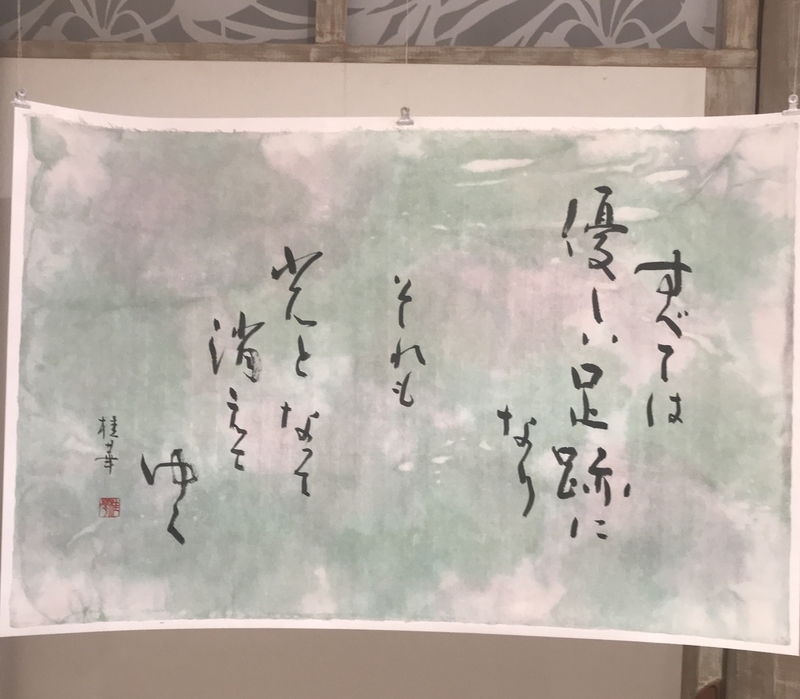 すべては
優しい足跡に
なり
それも
光となって
消えて
ゆく
桂華